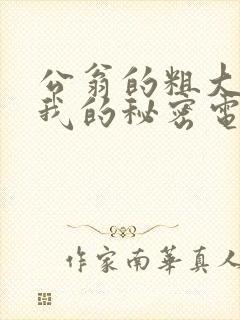 公翁的粗大
我的秘密電
作家南華真人